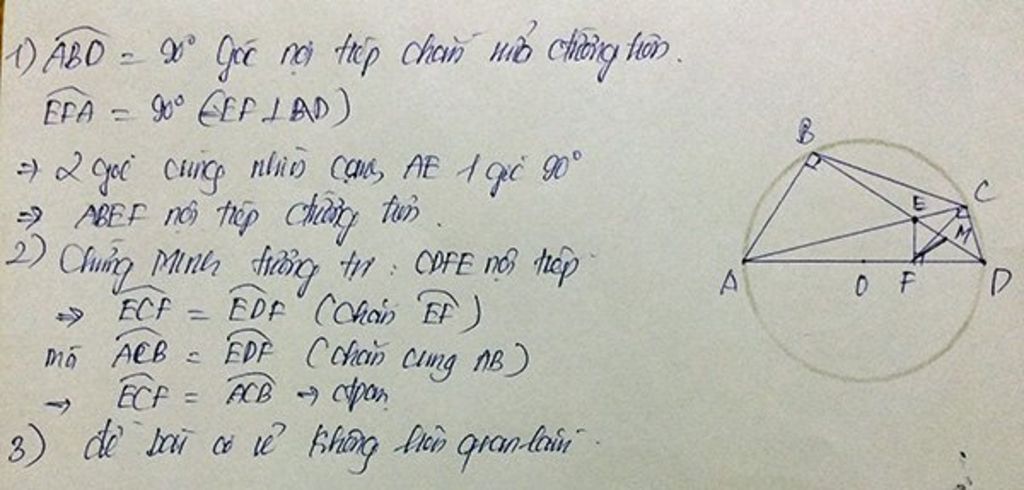 1) ABD = 90° góc nội tiếp chắn nửa đường tròn.
EFA = 90° (EF ⊥ AD)
⇒ 2 góc cùng nhìn cạnh AE 1 góc 90°
⇒ ABEF nội tiếp đường tròn.
2) Chứng Minh tương tự : CDFE nội tiếp
⇒ ECF = EDF (Chắn EF)
mà ACB = EDF (chắn cung AB)
→ ECF = ACB → đpcm
3) đề bài có vẻ không liên quan lắm.
B
C
E
M
A
O
F
D